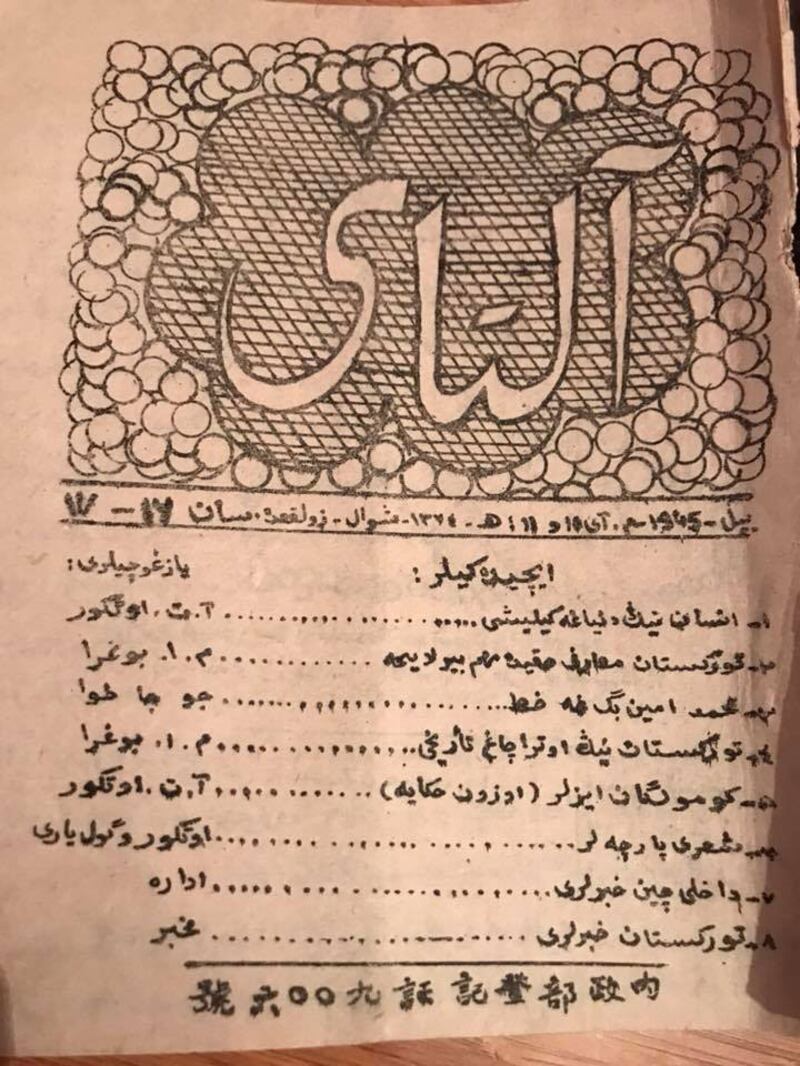 آلتای
ییل - 1945 - م. آی 10 و 11 ؛ هـ - ۱۳۶٤ - شوال - ذولقعده . سان ۱۶ - ۱۷
ایچیده کیلر : یازغوچیلری :
۱- انسان نینڭ دنیاغه کیلیشی ........ آ.ت. اوتکور
۲- تورکستان معارفی حقیده مهم بیر لایحه ........ م. ا. بوغرا
۳- محمد امین بگ غه خط ........ جو جا خوا
٤- تورکستان نینڭ اوترا چاغ تأریخی ........ م. ا. بوغرا
۵- کومولگان ایزلر (اوزون حکایه) ........ آ.ت. اوتکور
۶- شعری پارچه لر ........ اوتکور و گول یاری
۷- داخلی چین خبرلری ........ اداره
۸- تورکستان خبرلری ........ مخبر
內政部登記証九〇〇六號